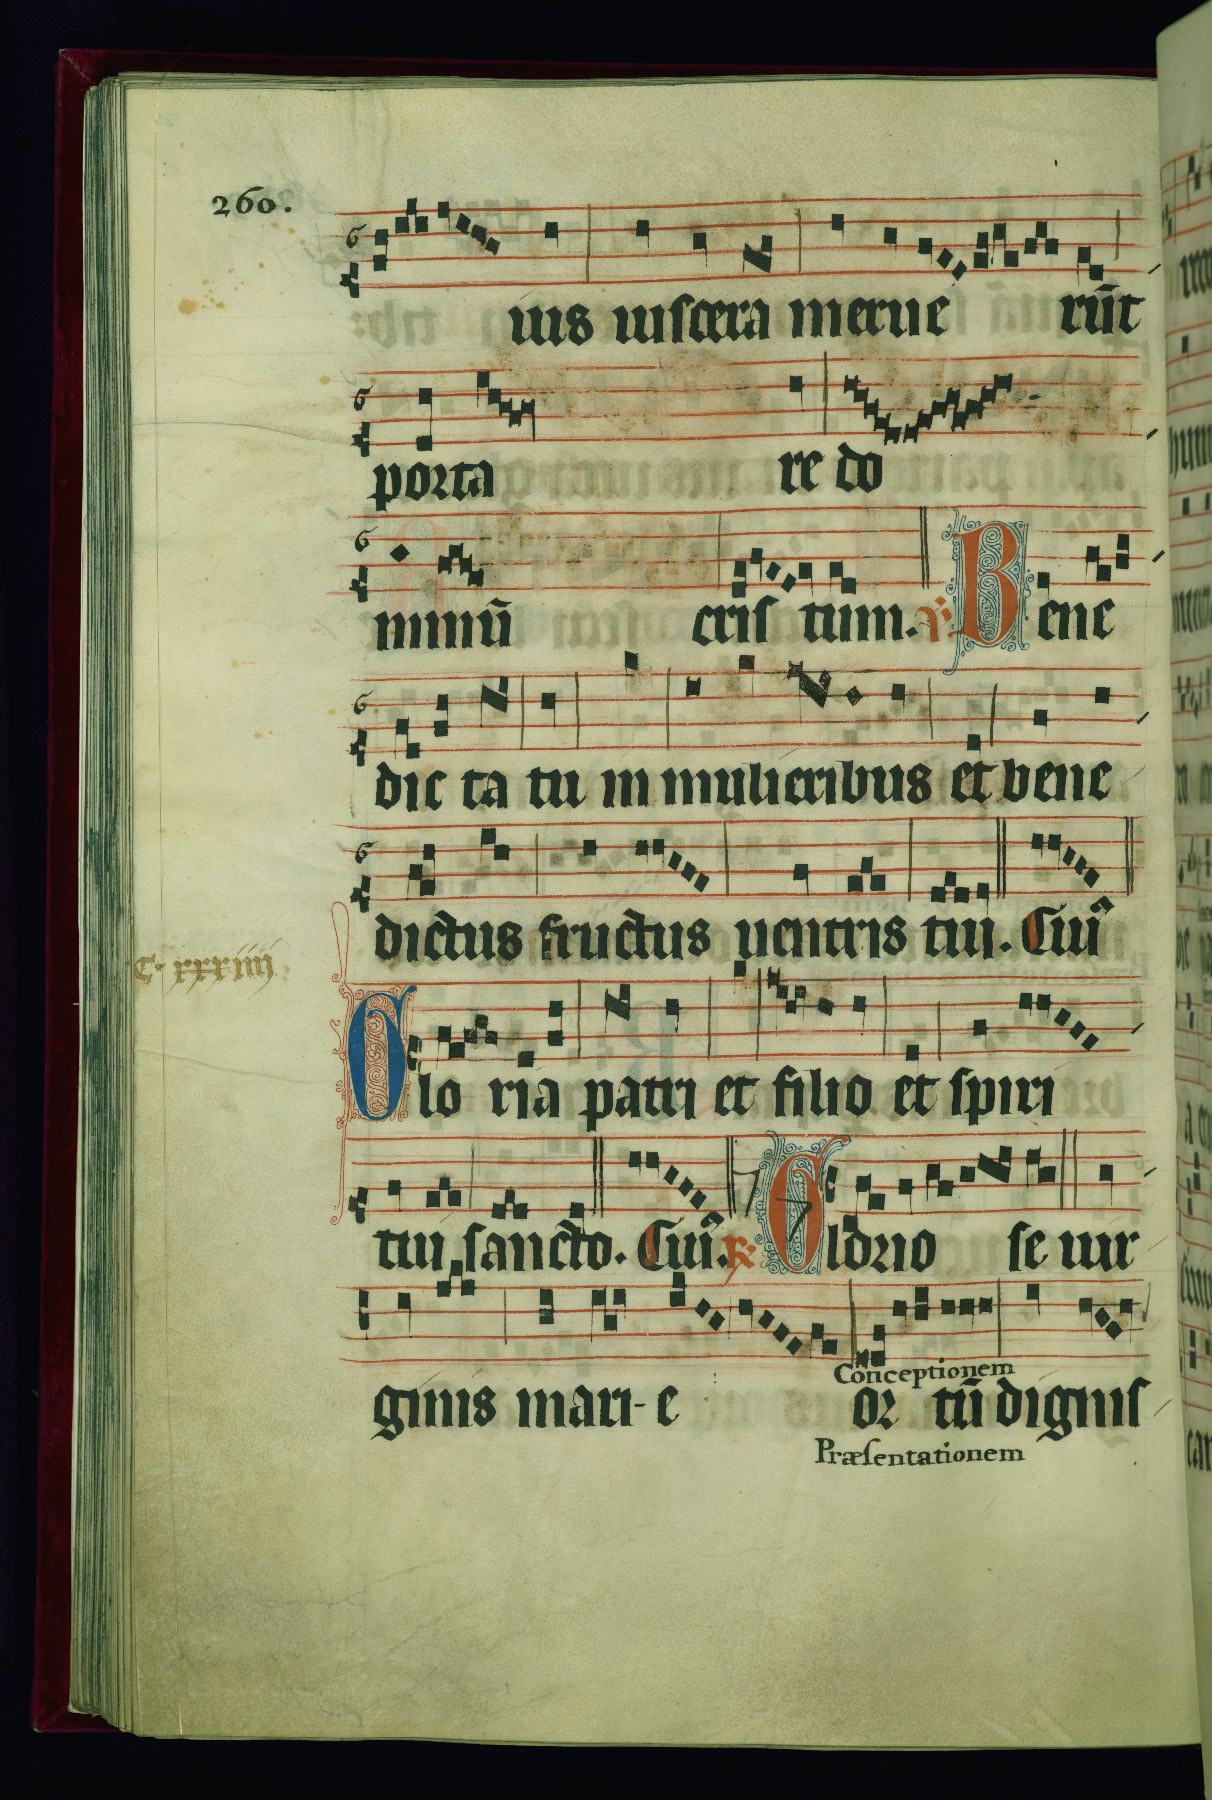 260.
ius uiscera merue rūt
porta re do
minū cris tum. ℣. Bene
dic ta tu in mulieribus et bene
dictus fructus uentris tui. Cuiꝰ
C· xxxiiii
Glo ria patri et filio et spiri
tui sancto. Cuiꝰ. ℟ Glorio se uir
Conceptionem
ginis mari-e or tū dignis
Præsentationem